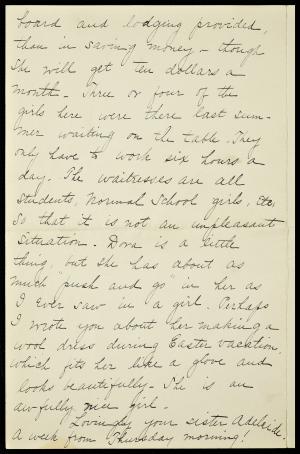 board and lodging provided,
than in saving money - though
she will get ten dollars a
month - Three or four of the
girls here were there last sum-
mer waiting on the table. They
only have to work six hours a
day. The waitresses are all
students, Normal School girls, etc.
So that it is not an unpleasant
situation. Dora is a little
thing, but she has about as
much "push and go" in her as
I ever saw in a girl. Perhaps
I wrote you about her making a
wool dress during Easter vacation,
which fits her like a glove and
looks beautifully - She is an
awfully nice girl.
Lovingly your sister Adelaide.
A week from Thursday morning!